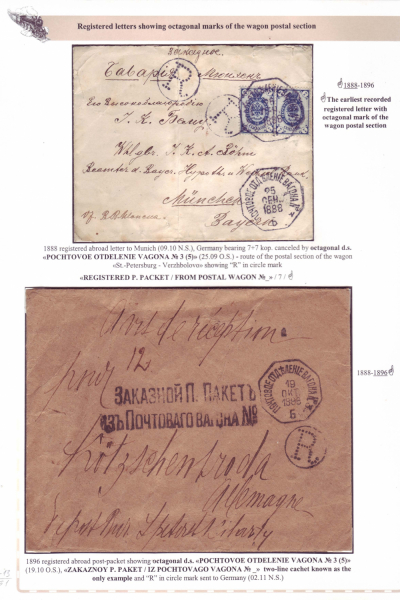 Registered letters showing octagonal marks of the wagon postal section
1888-1896
The earliest recorded
registered letter with
octagonal mark of the
wagon postal section
заказное.
Баварія Мюнхенъ
R
Его Высокоблагородію
München
Bayern
ПОЧТОВОЕ ОТДѢЛЕНІЕ ВАГОНА №
25
СЕН.
1888
1888 registered abroad letter to Munich (09.10 N.S.), Germany bearing 7+7 kop. canceled by octagonal d.s.
«POCHTOVOE OTDELENIE VAGONA № 3 (5)» (25.09 O.S.) - route of the postal section of the wagon
«St.-Petersburg - Verzhbolovo» showing "R" in circle mark
«REGISTERED P. PACKET / FROM POSTAL WAGON №_» /7/
Avis de réception
pour 12
ЗАКАЗНОЙ П. ПАКЕТЪ
ИЗЪ ПОЧТОВАГО ВАГОНА №
ПОЧТОВОЕ ОТДѢЛЕНІЕ ВАГОНА №
19
ОКТ
1896
5
R
Kötzschenbroda
Allemagne
1888-1896
1896 registered abroad post-packet showing octagonal d.s. «POCHTOVOE OTDELENIE VAGONA № 3 (5)»
(19.10 O.S.), «ZAKAZNOY P. PAKET / IZ POCHTOVAGO VAGONA №_» two-line cachet known as the
only example and "R" in circle mark sent to Germany (02.11 N.S.)